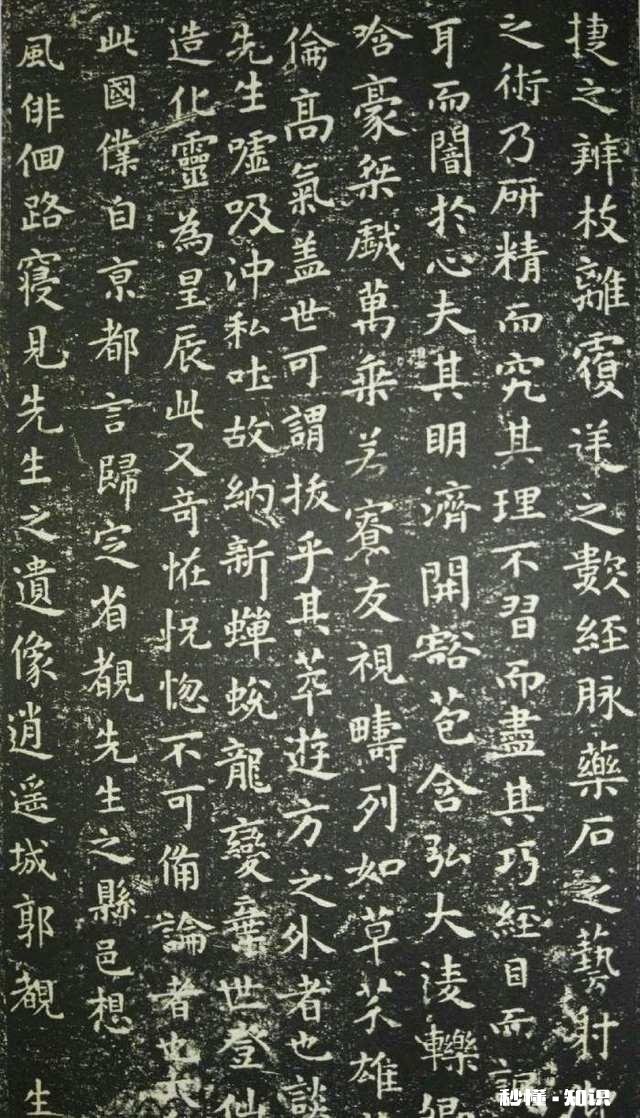 捷之辨枝離覆逆之數經脉藥石之藝射
之術乃研精而究其理不習而盡其巧經目而
耳而闇於心夫其明濟開豁苞含弘大淩轢
哈豪桀戲萬乗若寮友視疇列如草芥雄
倫高氣盖世可謂拔乎其萃遊方之外者也談
先生噓吸沖和吐故納新蟬蛻龍變棄世登仙
造化靈為星辰此又奇恠怳惚不可備論者也大
此國僕自京都言歸定省覩先生之縣邑想
風俳佪路寢見先生之遺像逍遥城郭覩 生
秒懂·知识